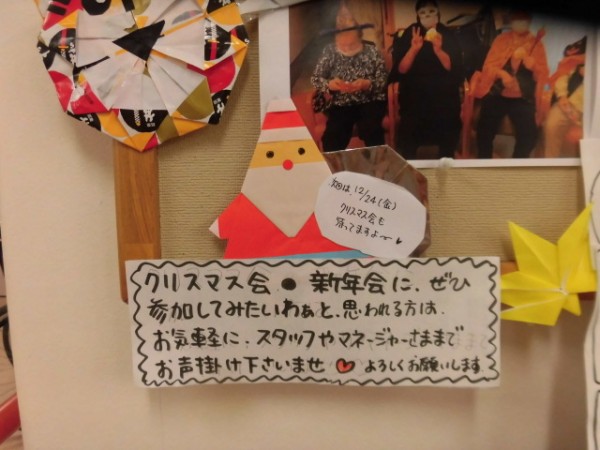 次回は、12/24(金)
クリスマス会を
待ってますよ〜♥
クリスマス会●新年会に、ぜひ
参加してみたいわぁと、思われる方は、
お気軽に、スタッフやマネージャーさままで
お声掛け下さいませ♥よろしくお願いします